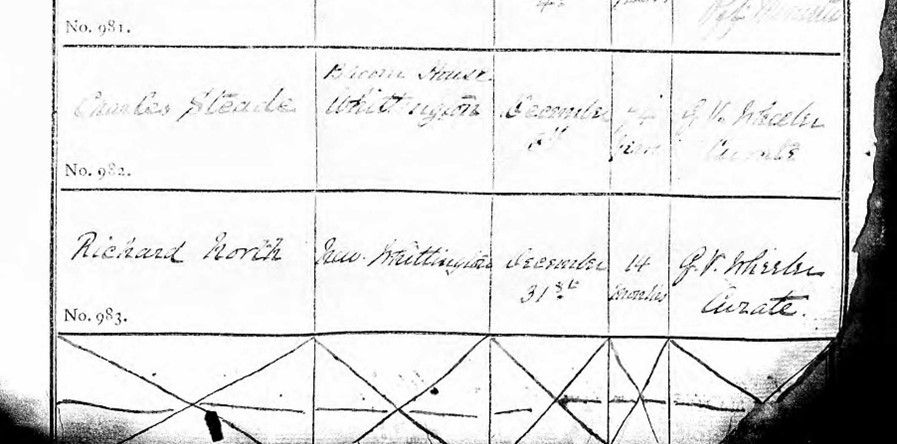 No. 981.
Charles Steade
Broom House
Whittington
December
74
years
G. V. Wheeler
Curate
No. 982.
Richard North
New Whittington
December
31st
14
months
G. V. Wheeler
Curate.
No. 983.